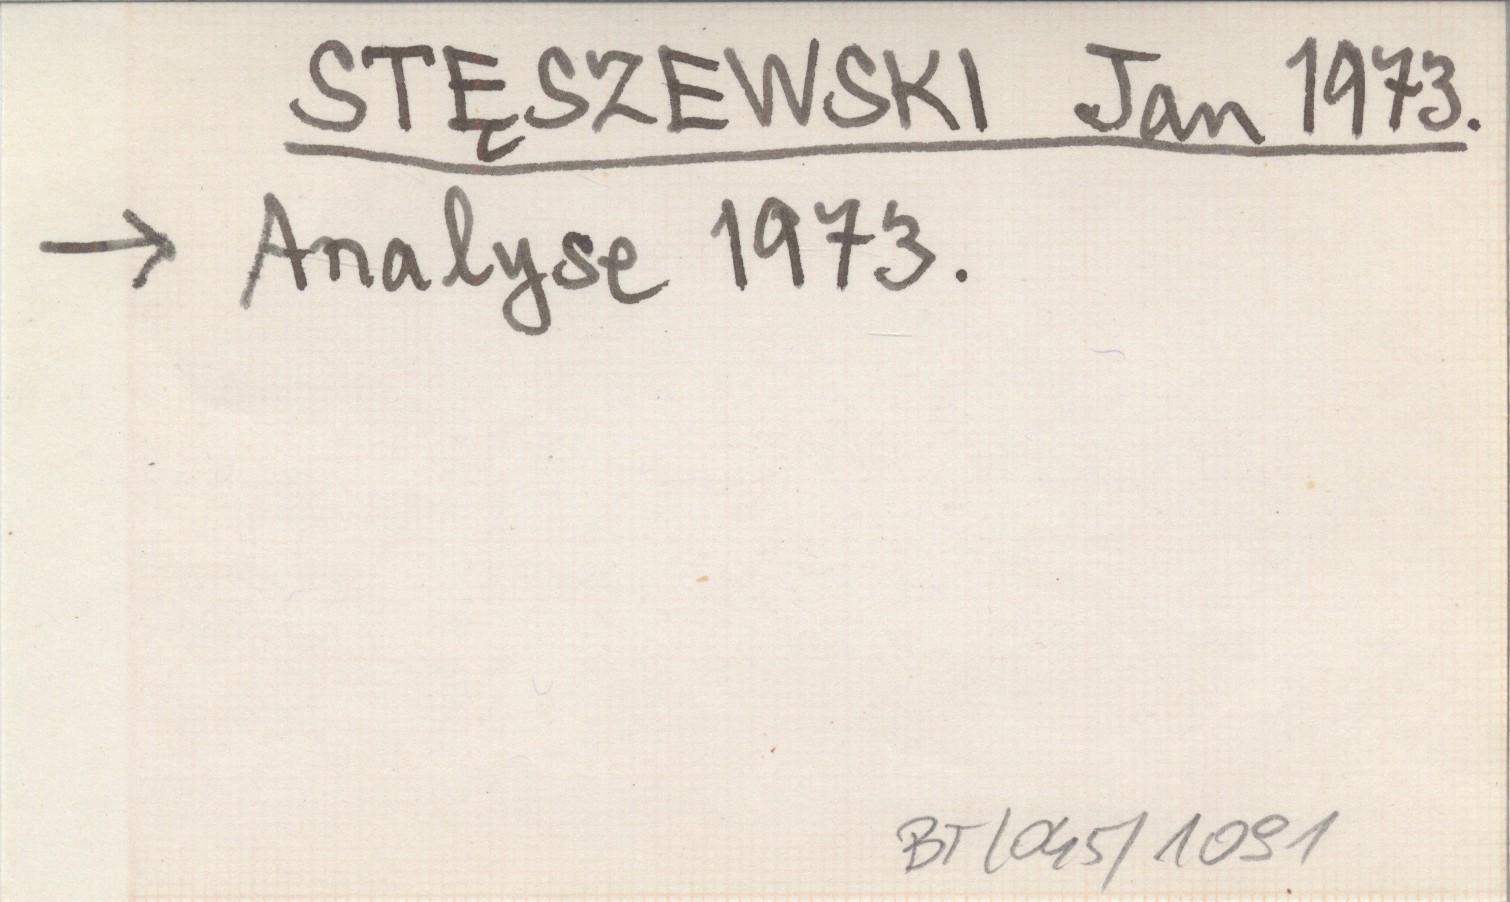 STĘSZEWSKI Jan 1973.
→ Analyse 1973.
BT/045/1091